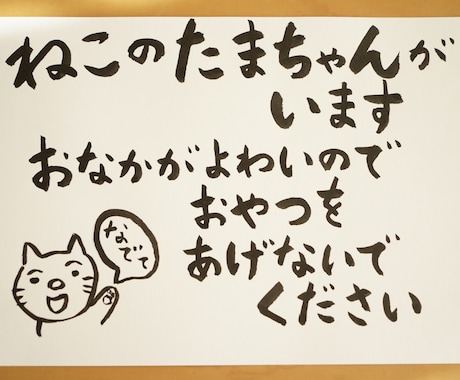 ねこのたまちゃんが
います
おなかがよわいので
おやつを
あげないで
ください
なでて